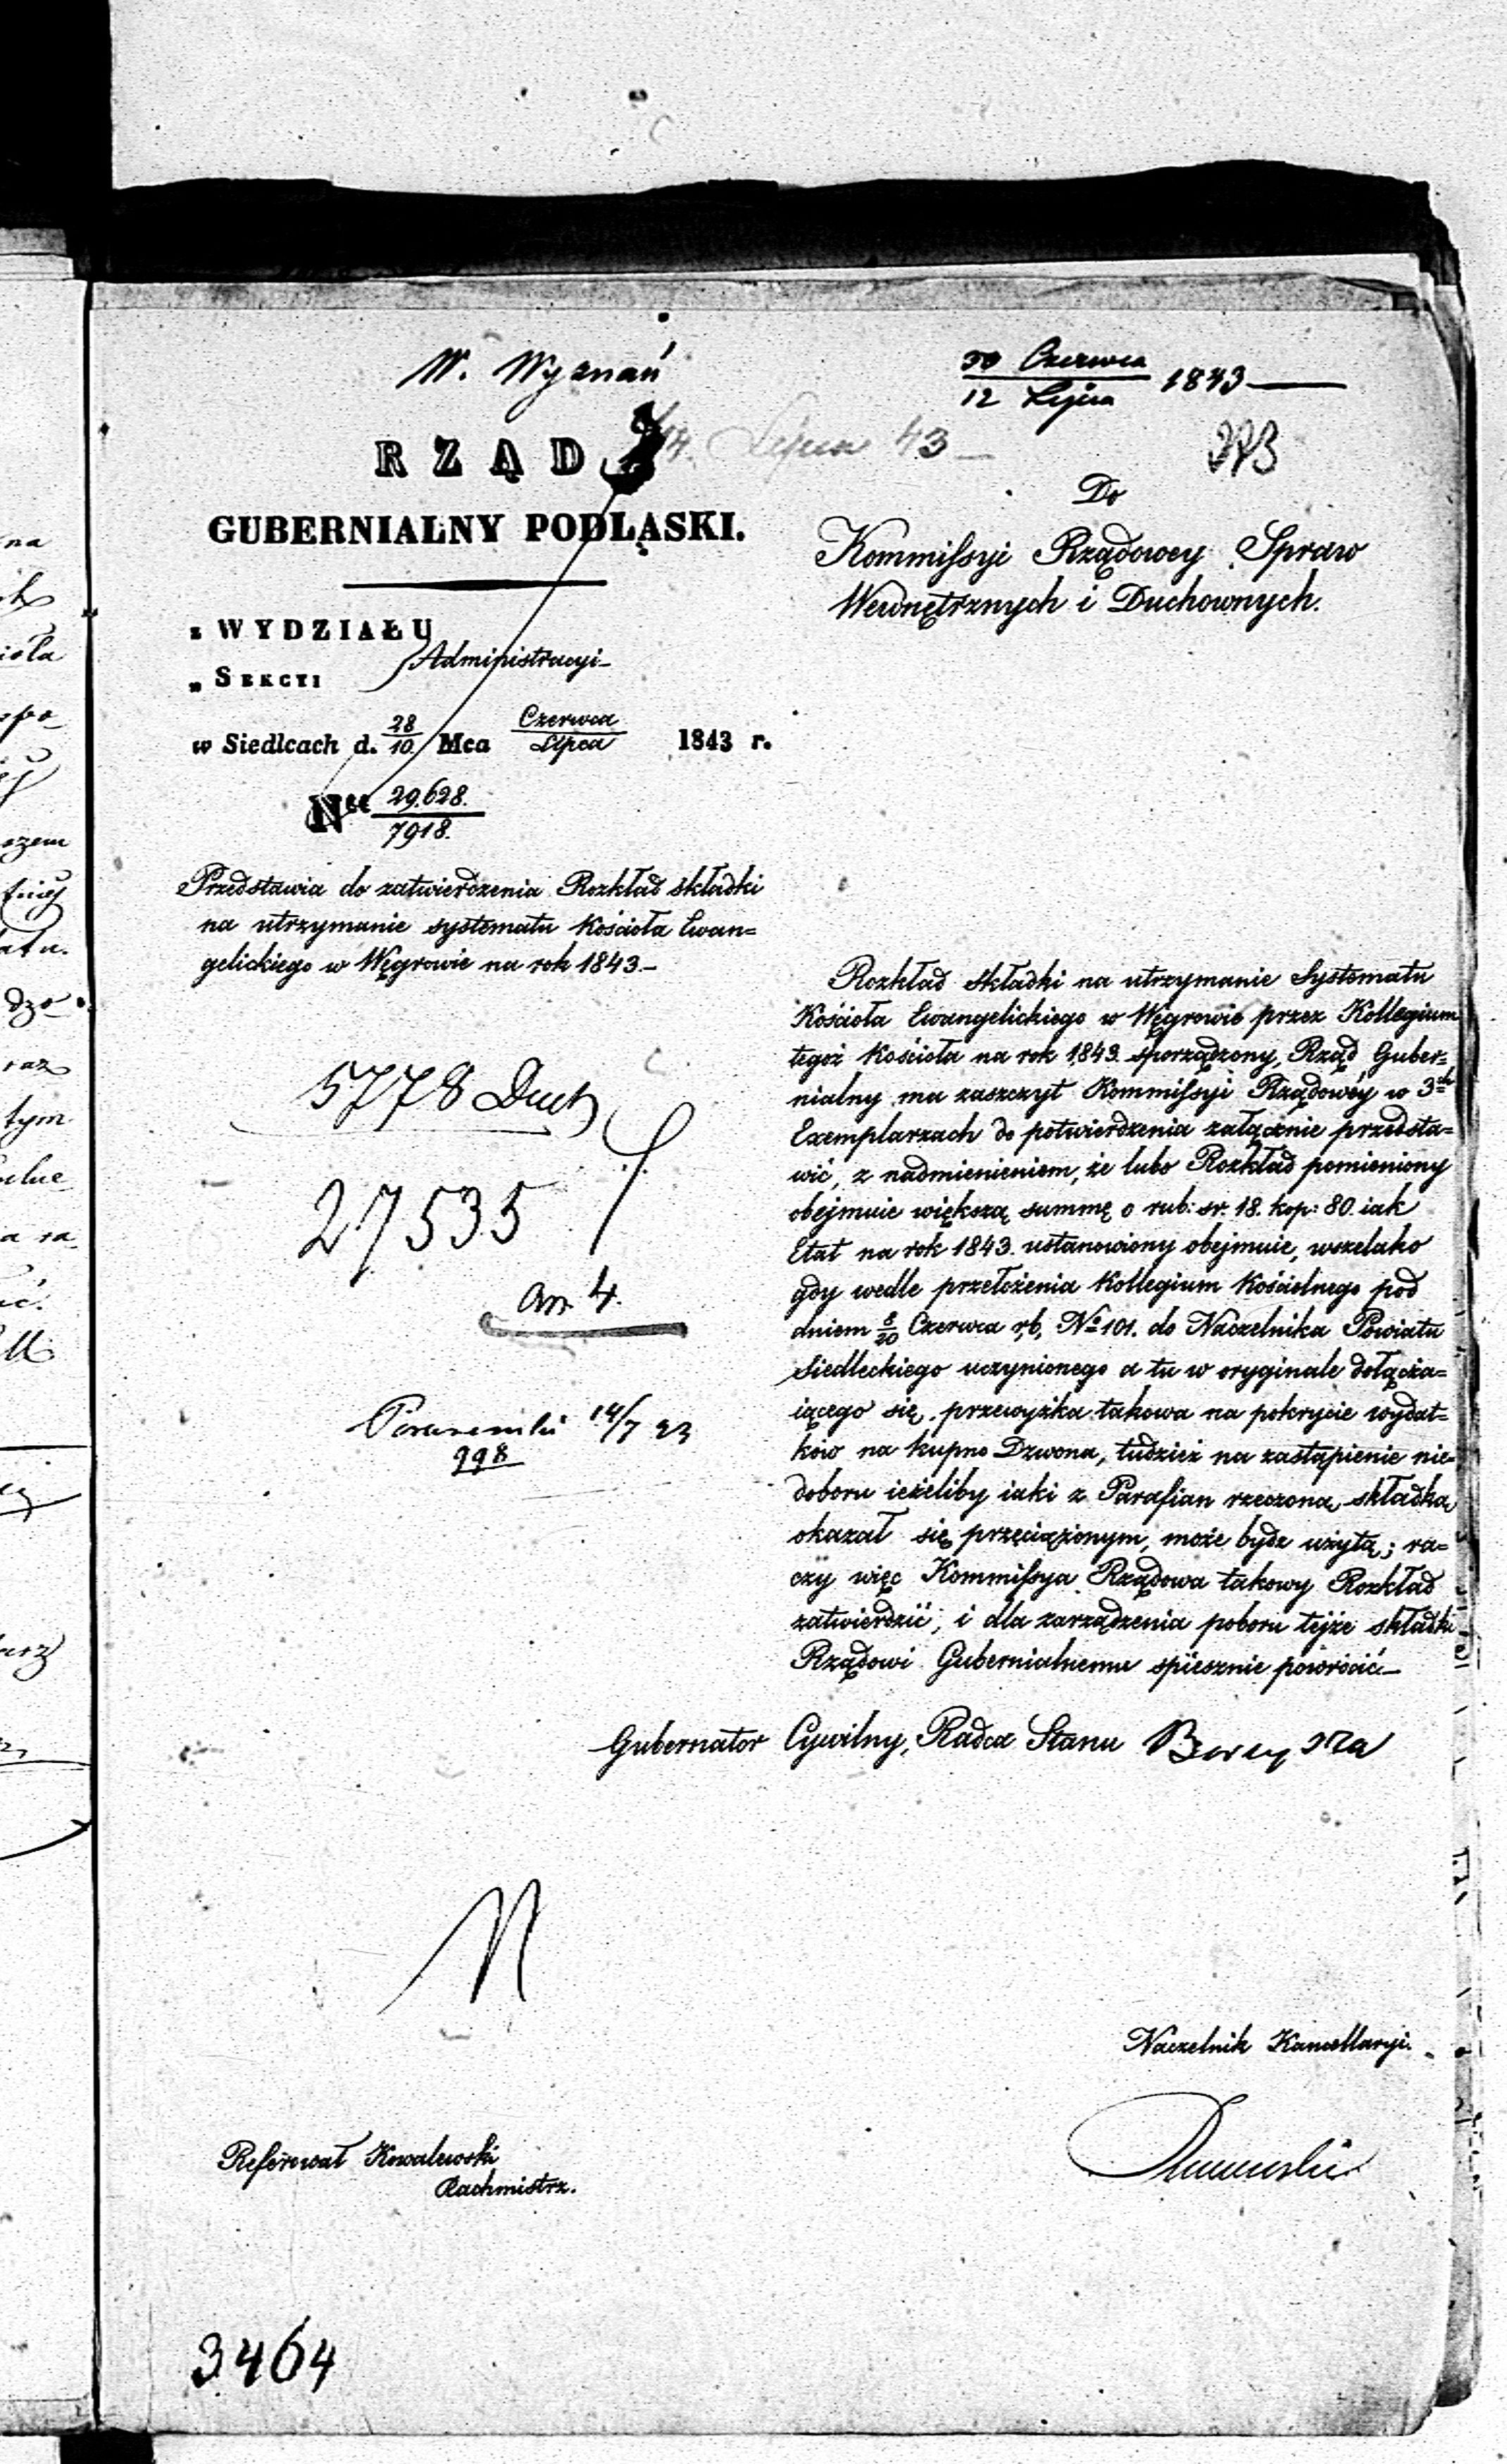 W. Wyznań
30 Czerwca
12 Lipca 1843
14. Lipca 43
RZĄD
GUBERNIALNY PODLĄSKI.
z WYDZIAŁU
Administracyi
„ SEKCYI
w Siedlcach d. 28/10. Mca Czerwca/Lipca 1843 r.
Nr 29.628.
7918.
Przedstawia do zatwierdzenia Rozkład składki
na utrzymanie systematu Kościoła Ewan=
gelickiego w Węgrowie na rok 1843.
5778 Duch
27535
an 4.
14/7 43
998
Do
Kommissyi Rządowey Spraw
Wewnętrznych i Duchownych.
Rozkład składki na utrzymanie Systematu
Kościoła Ewangelickiego w Węgrowie przez Kollegium
tegoż Kościoła na rok 1843. sporządzony, Rząd Guber=
nialny ma zaszczyt Kommissyi Rządowéy w 3ch
Exemplarzach do potwierdzenia załącznie przedsta=
wić, z nadmienieniem, że lubo Rozkład pomieniony
obejmuie większą summę o rub: sr. 18. kop: 80. iak
Etat na rok 1843. ustanowiony obejmuie, wszelako
gdy wedle przełożenia Kollegium Kościelnego pod
dniem 8/20 Czerwca r,b, No 101. do Naczelnika Powiatu
Siedleckiego uczynionego a tu w oryginale dołącza=
iącego się, przewyżka takowa na pokrycie wydat=
ków na kupno Dzwona, tudzież na zastąpienie nie=
doboru ieżeliby iaki z Parafian rzeczoną składką
okazał się przeciążonym, może bydz użytą; ra=
czy więc Kommissya Rządowa takowy Rozkład
zatwierdzić, i dla zarządzenia poboru tejże składki
Rządowi Gubernialnemu spiesznie powrócić
Gubernator Cywilny, Radca Stanu
Naczelnik Kancellaryi.
Referował Kowalewski
Rachmistrz.
3464